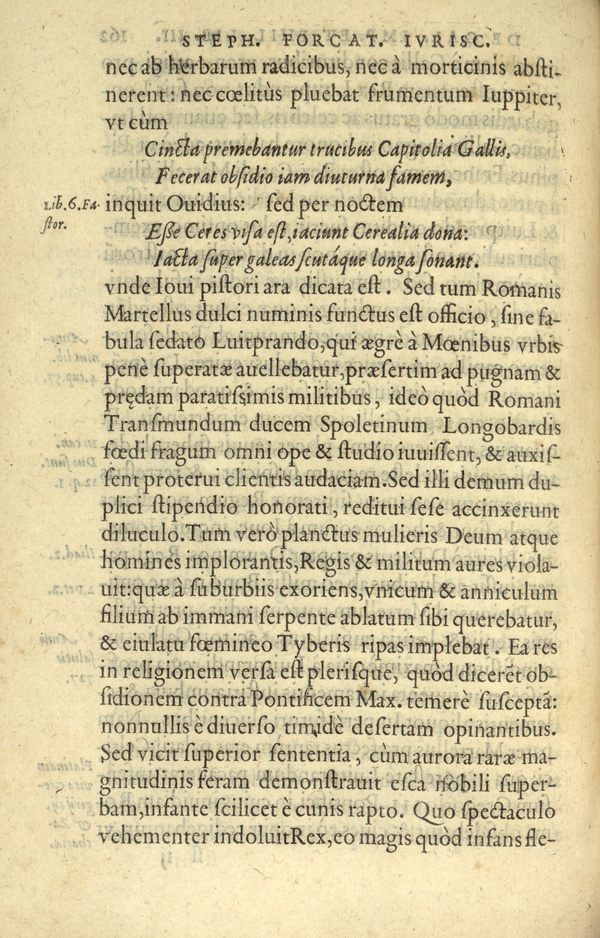 STEPH. FORCAT. IVRISC.
nec ab herbarum radicibus, nec à morticinis absti-
nerent: nec cœlitùs pluebat frumentum Iuppiter,
vt cùm
Cincta premebantur trucibus Capitolia Gallis,
Fecerat obsidio iam diuturna famem,
Lib. 6. Fa-
stor.
inquit Ouidius: sed per noctem
Esse Ceres visa est, iaciunt Cerealia dona:
Iacta super galeas scutáque longa sonant.
vnde Ioui pistori ara dicata est. Sed tum Romanis
Martellus dulci numinis functus est officio, sine fa-
bula sedato Luitprando, qui ægrè à Mœnibus vrbis
penè superatæ auellebatur, præsertim ad pugnam &
prędam paratissimis militibus, ideò quòd Romani
Transmundum ducem Spoletinum Longobardis
fœdifragum omni ope & studio iuuissent, & auxis-
sent proterui clientis audaciam. Sed illi demum du-
plici stipendio honorati, reditui sese accinxerunt
diluculo. Tum verò planctus mulieris Deum atque
homines implorantis, Regis & militum aures viola-
uit: quæ à suburbiis exoriens, vnicum & anniculum
filium ab immani serpente ablatum sibi querebatur,
& eiulatu fœmineo Tyberis ripas implebat. Ea res
in religionem versa est plerisque, quòd dicerẽt ob-
sidionem contra Pontificem Max. temerè susceptã:
nonnullis è diuerso timidè desertam opinantibus.
Sed vicit superior sententia, cùm aurora raræ ma-
gnitudinis feram demonstrauit esca nobili super-
bam, infante scilicet è cunis rapto. Quo spectaculo
vehementer indoluit Rex, eo magis quòd infans fle-